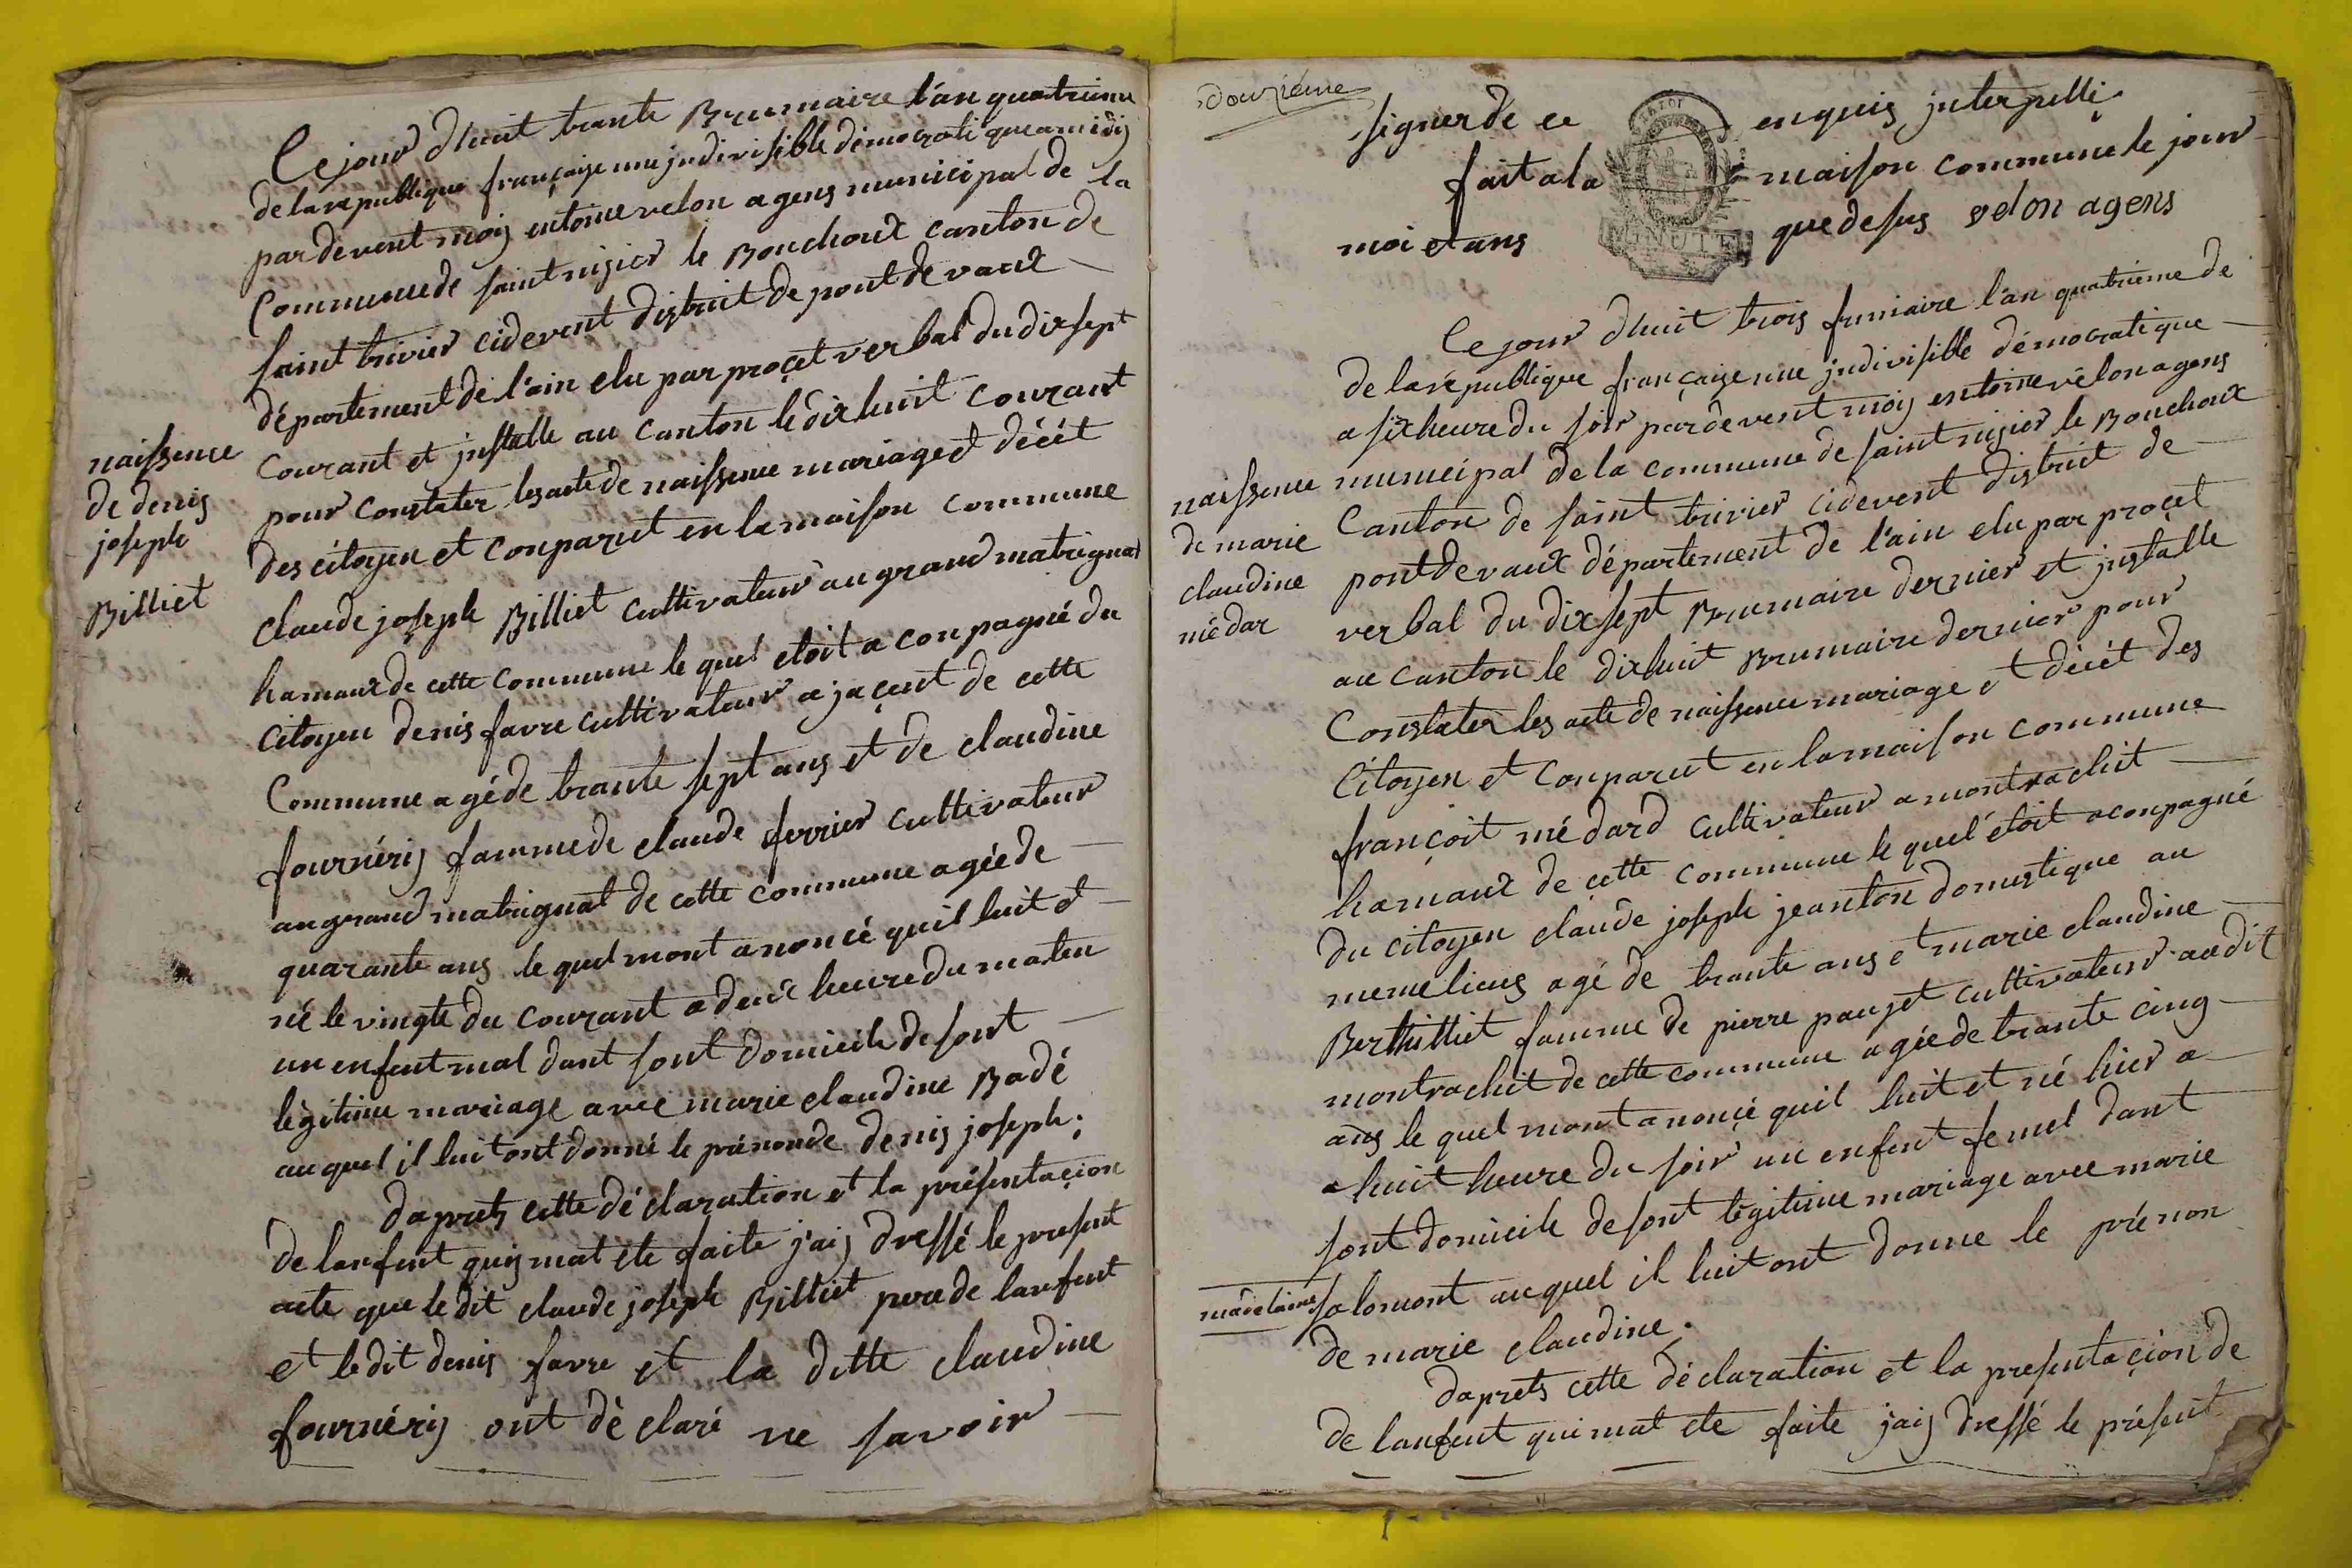 Ce jour d'huit trante Brumaire l'an quatrieme
de la republique française une jndivisible démocratique a midij
par devent moij entoine velon agens municipal de la
Commune de saint nizier le Bouchoux canton de
saint trivier cidevent distruit de pont de vaux
département de l'ain elu par proçet verbal du dix sept
courant et jnstalle au canton le dix huit courant
pour constater les acte de naissence mariage et décét
des citoyen et conparut en la maison commune
claude joseph Billiet cultivateur au grand matrignat
hamaux de cette commune le quel etoit aconpagné du
citoyen denis favre cultivateur ajaçent de cette
Commune agé de trante sept ans et de claudine
fournérij famme de claude ferrier cultivateur
au grand matrignat de cette commune agée de
quarante ans le quel mont anoncé quil luit et
né le vingte du courant a deux heure du maten
un enfent mal dant sont domicile de sont
légitime mariage avec marie claudine Badé
auquel il luit ont donné le prénon de denis joseph;
daprets cette déclaration et la présentaçion
de lanfent quij mat ete faite j'aij dressé le present
acte que le dit claude joseph Billiet pere de lanfent
et le dit denis favre et la ditte claudine
fournérij ont déclaré ne savoir
naissence
de denis
joseph
Billiet
douzieme
signer de ce enquis jnterpelli
fait a la maison commune le jour
moi et ans que desus velon agens
MINUTE
Ce jour d'huit trois frimaire l'an quatrieme de
de la republique françaize une jndivisible démocratique
a six heure du soir par devent moij entoine vélon agens
municipal de la commune de saint nizier le Bouchoux
Canton de saint trivier cidevent distruit de
pont de vaux département de l'ain elu par proçet
verbal du dix sept Brumaire dernier et jnstalle
au canton le dix huit Brumaire dernier pour
Constater les acte de naissence mariage et décét des
Citoyen et conparut en la maison commune
françoit médard cultivateur a montrachit
hamaux de cette commune le quel étoit aconpagné
du citoyen claude joseph jeanton domestique au
meme lieus agé de trante ans et marie claudine
Berthilliet famme de pierre paujet cultivateur audit
montrachit de cette commune agée de trante cinq
ans le quel mont anonçé quil luit et né hier a
a huit heure du soir un enfent femel dant
sont domicile de sont légitime mariage avec marie
madelaine salomont auquel il luit ont donne le prénon
de marie claudine.
daprets cette déclaration et la presentaçion de
de lanfent qui mat ete faite jaij dressé le présent
naissence
de marie
claudine
médar